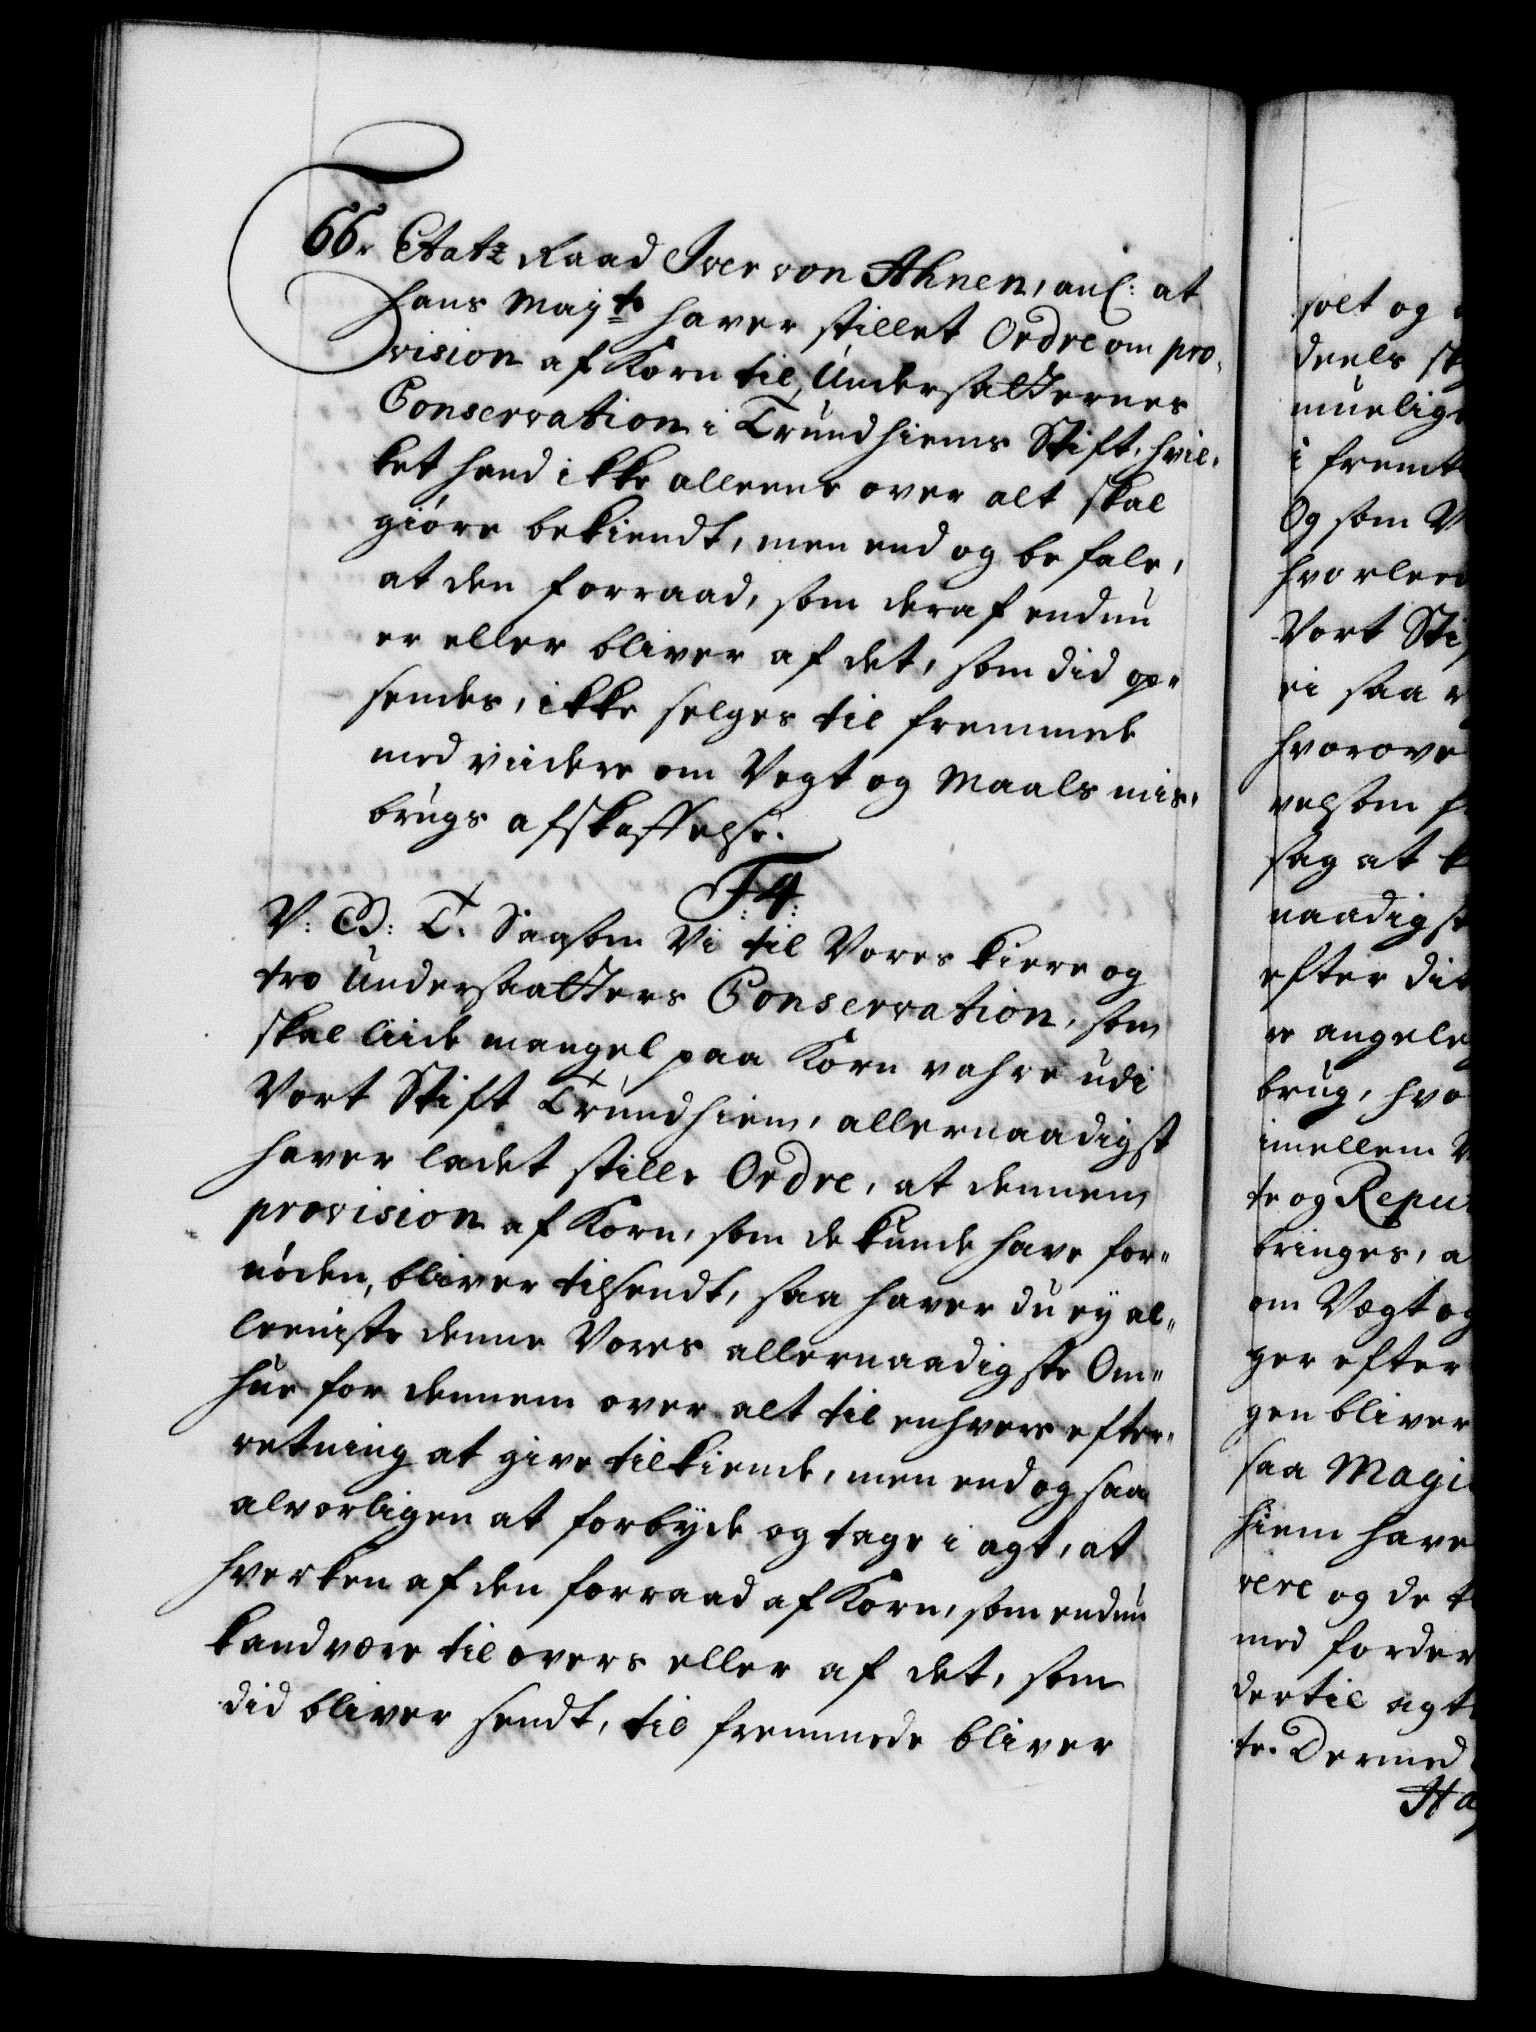 66. Etatz Raad Iver von Ahnen, anl: at
hans Mayts haver stillet Ordre om pro-
vision af Korn til Undersatternes
Conservation i Trundhiems Stift, hvil-
ket hand ikke alleene over alt skal
giøre bekiendt, men end og befale,
at den forraad, som deraf endnu
er eller bliver af det, som did op-
sendes, ikke selges til fremmede
med viidere om Vegt og Maals mis-
brugs afskaffelse.
F:4:
V: G: T. Saasom Vi til Vores kiere og
tro Undersaatters Conservation, som
skal liide mangel paa Korn vahre udi
Vort Stift Trundhiem, allernaadigst
haver ladet stille Ordre, at dennem
provision af Korn, som de kunde have for-
nøden, bliver tilsendt, saa haver du ey al-
leeniste denne Vores allernaadigste Om-
hue for dennem over alt til enhvers efter-
retning at give tilkiende, men end og saa
alvorligen at forbyde og tage i agt, at
hverken af den forraad af Korn, som endnu
kand være til overs eller af det, som
did bliver sendt, til fremmede bliver
solt og
deels
muelig
i fremt
Og som V
hvorleed
Vort Sti
ei saa
hvorove
velsom
sag at
naadigst
efter
re angele
brug, hvo
imellem
te og Repu
bringes, a
om Vægt og
ger efter
gen bliver
saa Magi
hiem have
rere og de
med forder
dertil agt
te. Dermed
Ha